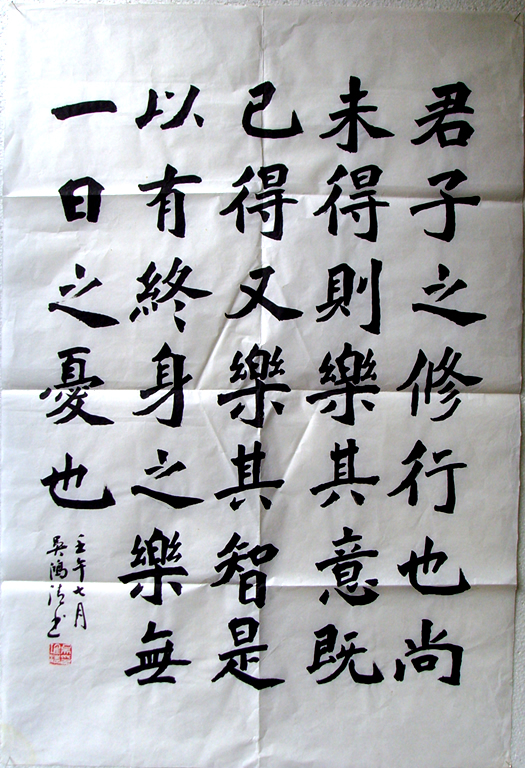 君子之修行也尚
未得則樂其意既
已得又樂其智是
以有終身之樂無
一日之憂也
壬午七月
吳鴻清书